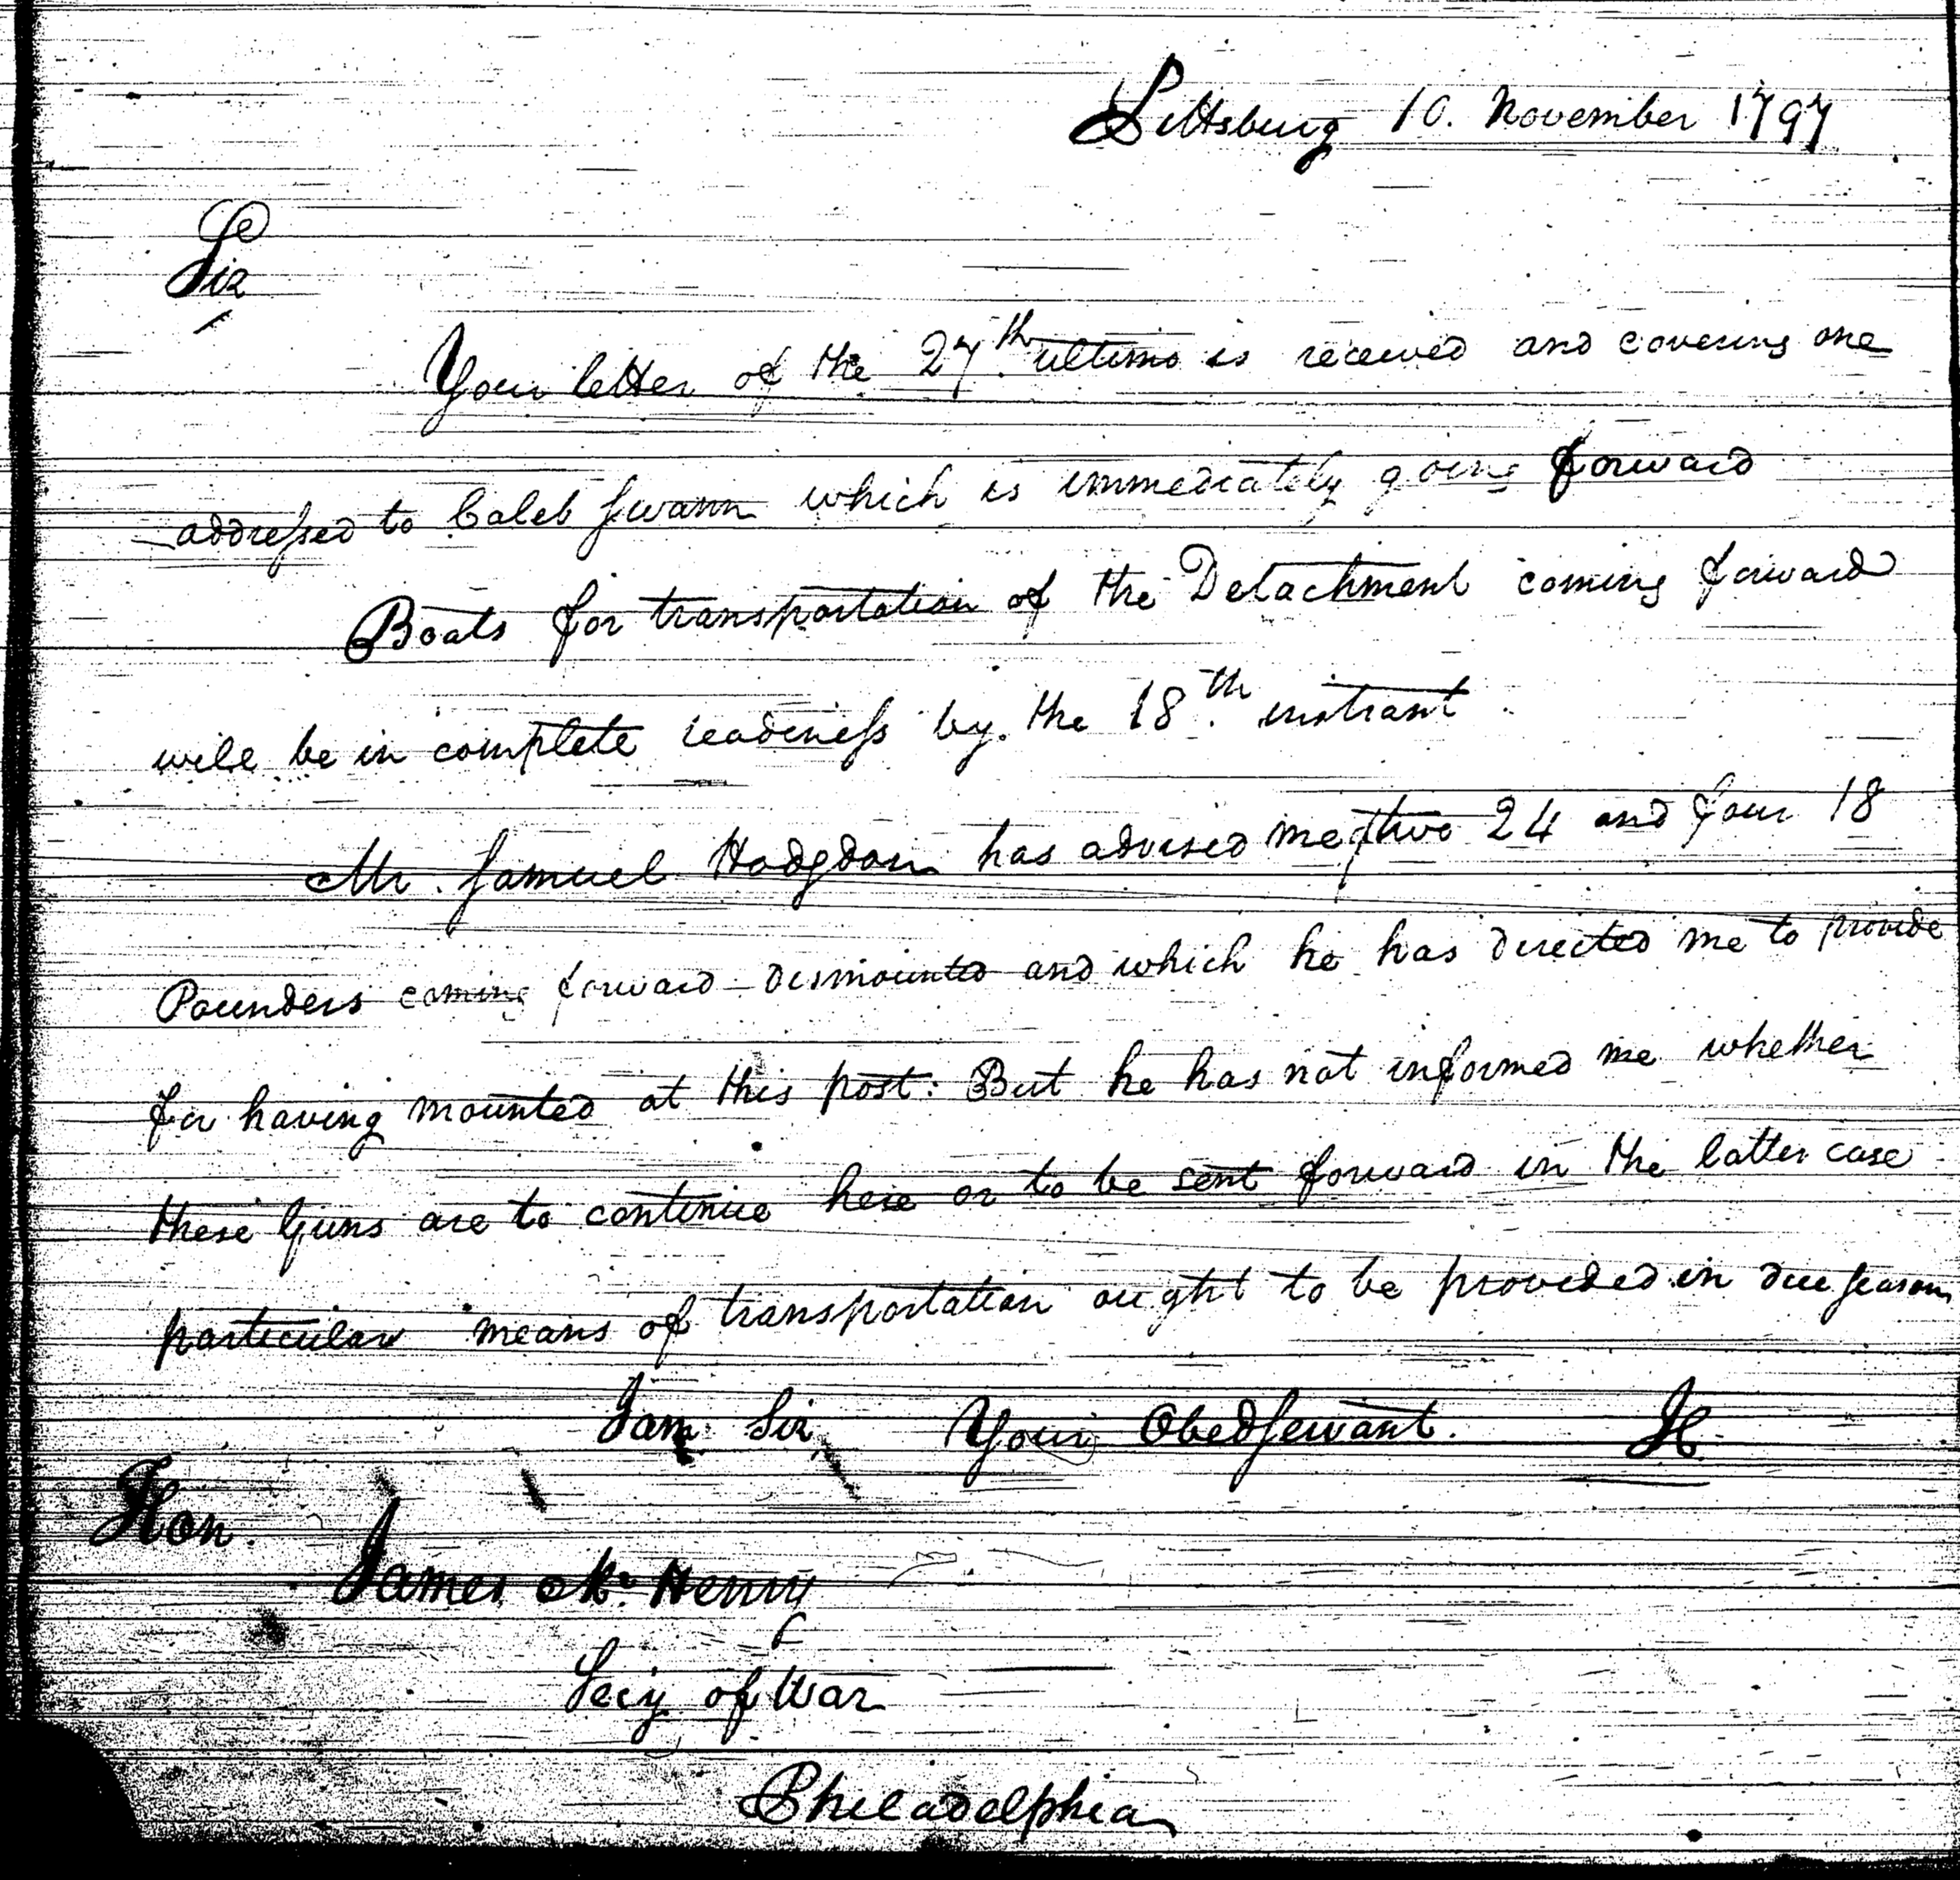 Pittsburg 10. November 1797
Sir
Your letter of the 27th. ultimo is received and covering one
addressed to Caleb Swann which is immediately going forward
Boats for transportation of the Detachment coming forward
will be in complete readiness by the 18th. instant.
Mr. Samuel Hodgdon has advised me of two 24 and four 18
Pounders coming forward dismounted and which he has directed me to provide
for having mounted at this post: But he has not informed me whether
these Guns are to continue here or to be sent forward in the latter case
particular means of transportation ought to be provided in due season
I am Sir Your Obed Servant.
Hon.
James Mc. Henry
Secy of War
Philadelphia